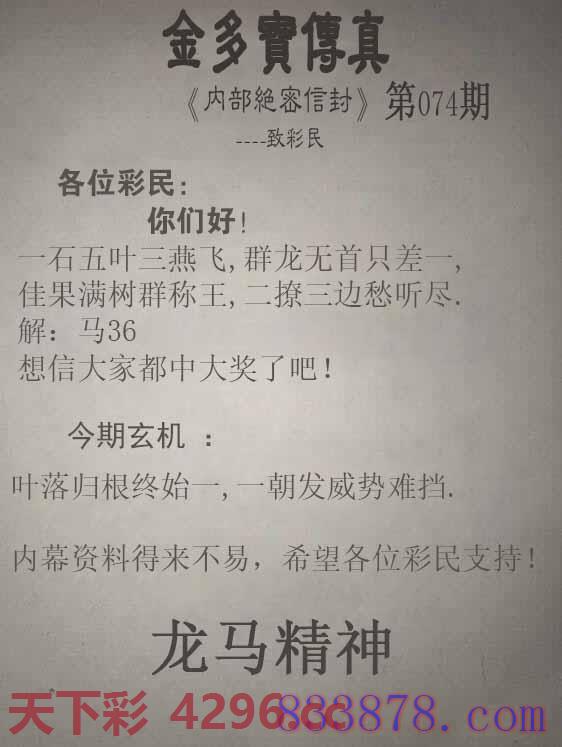 金多寶傳真
《内部絕密信封》第074期
----致彩民
各位彩民:
你们好!
一石五叶三燕飞,群龙无首只差一,
佳果满树群称王,二撩三边愁听尽.
解：马36
想信大家都中大奖了吧!
今期玄机 ：
叶落归根终始一,一朝发威势难挡.
内幕资料得来不易，希望各位彩民支持!
龙马精神
天下彩 4296.cc
883878.com